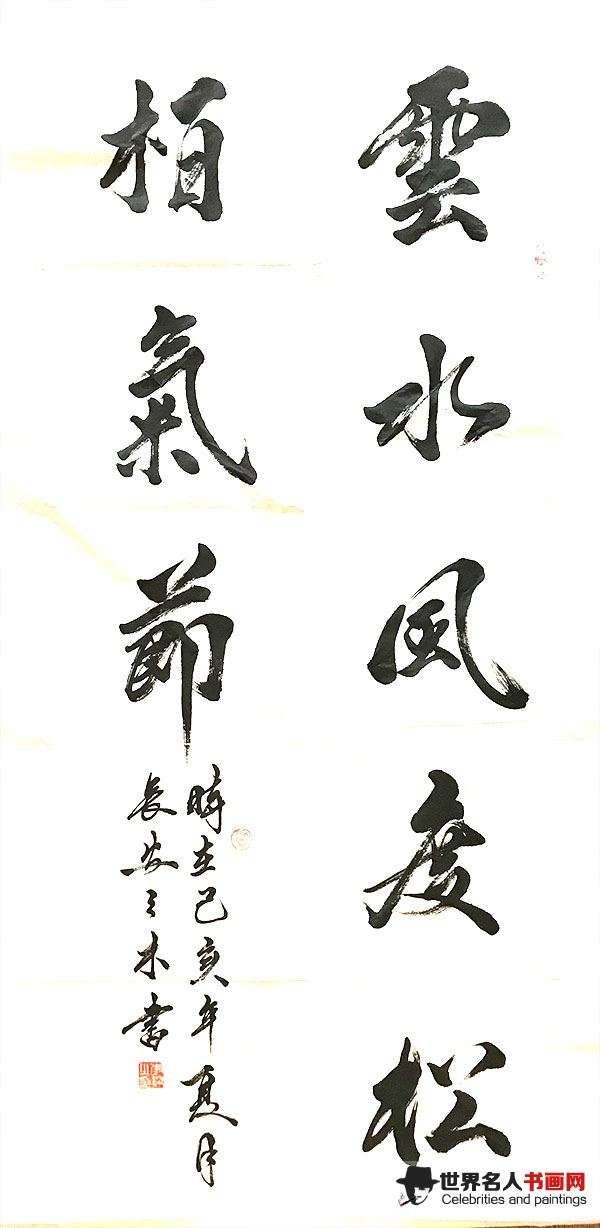 雲水風度松
柏氣節
時在己亥年夏月
長安之木書
世界名人书画网
Celebrities and paintings